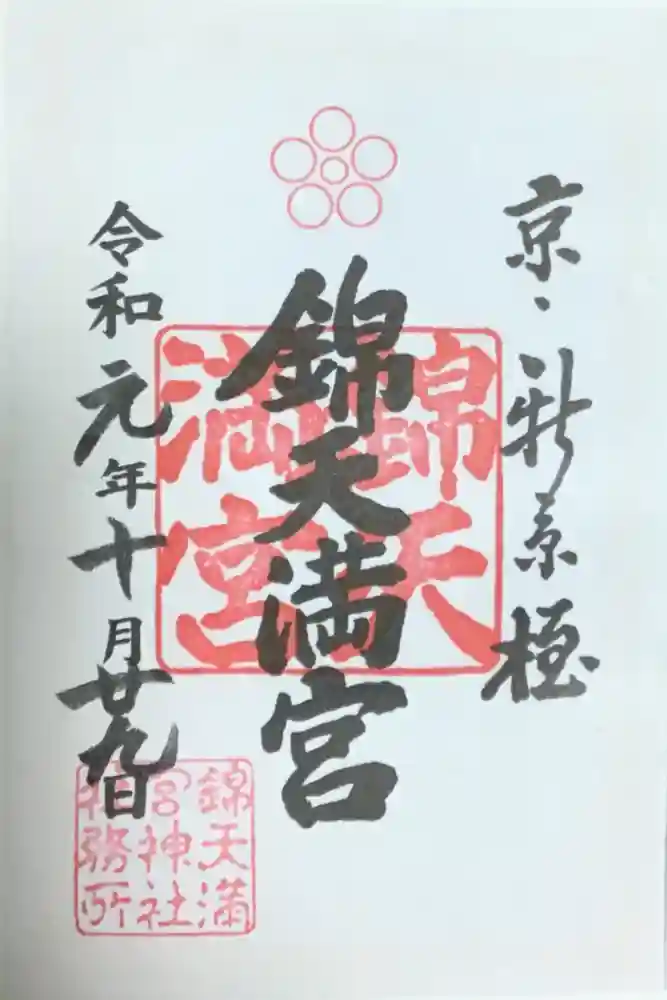 京、新京極
錦天満宮
錦天
満宮
令和元年十月廿九日
錦天満
宮神社
社務所